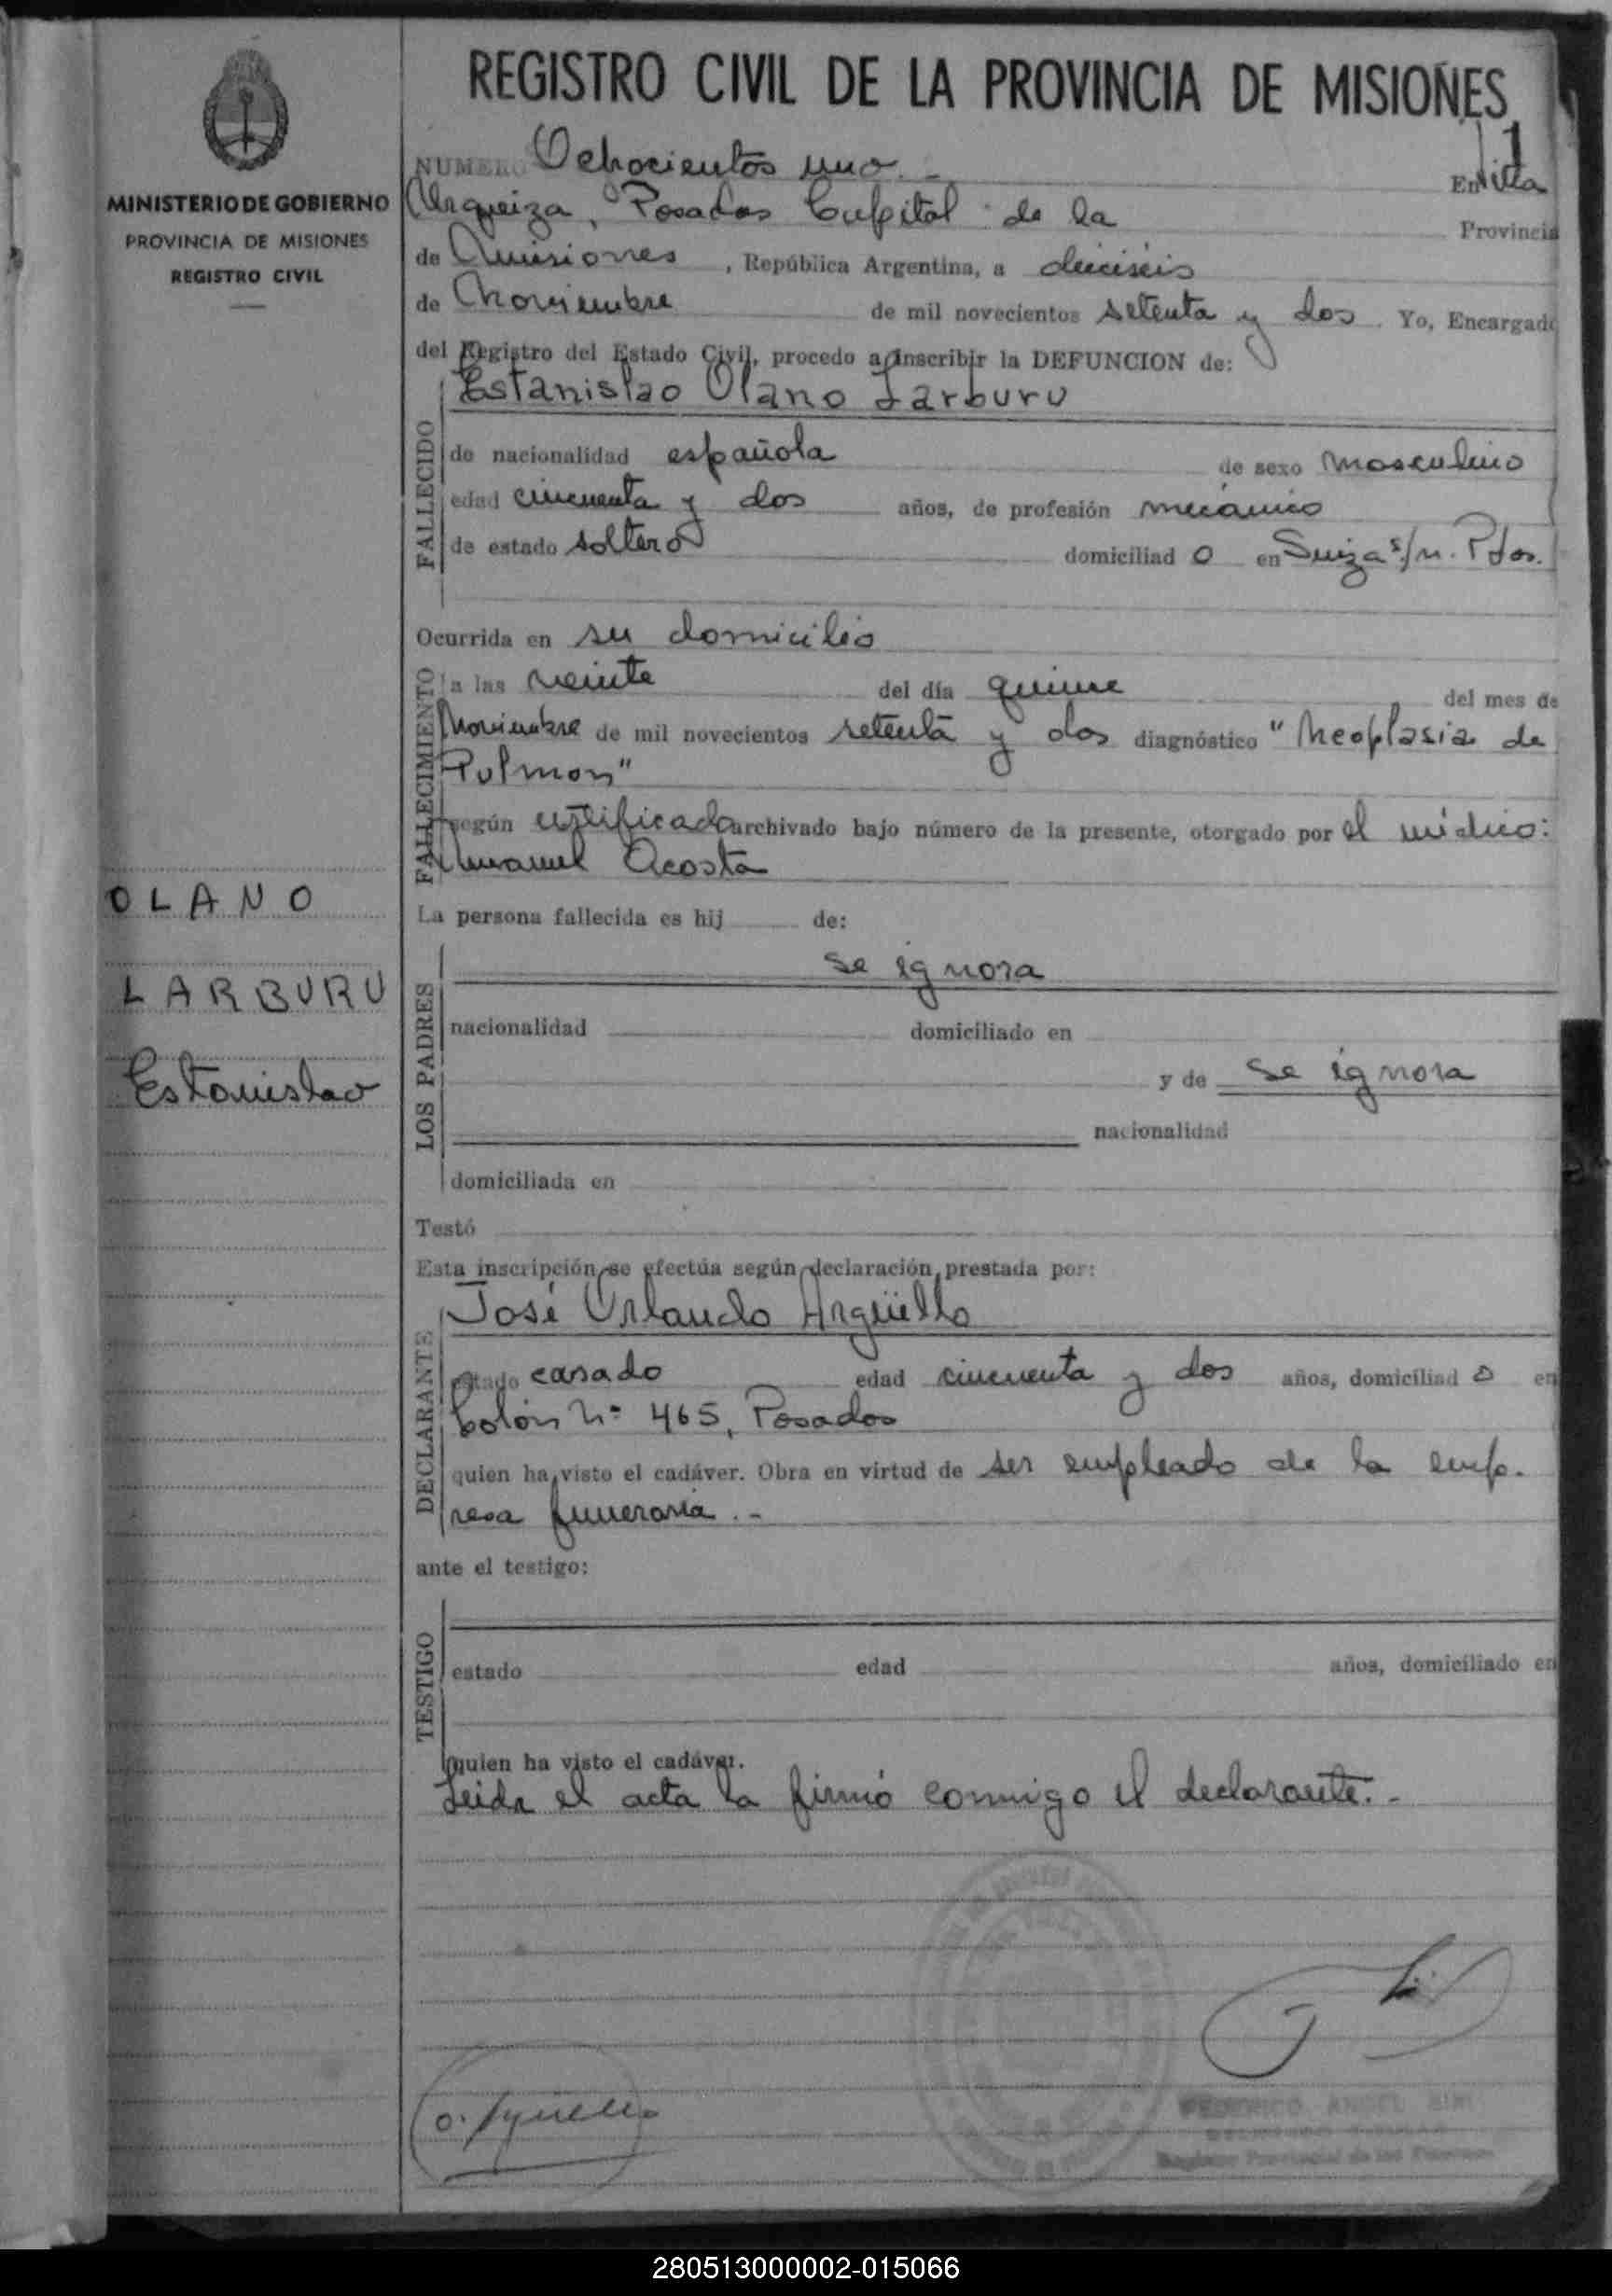 REGISTRO CIVIL DE LA PROVINCIA DE MISIONES
MINISTERIO DE GOBIERNO
PROVINCIA DE MISIONES
REGISTRO CIVIL
NUMERO Ochocientos uno.- En Villa
Urquiza, Posadas Capital de la Provincia
de Misiones, República Argentina, a dieciséis
de Noviembre de mil novecientos setenta y dos. Yo, Encargado
del Registro del Estado Civil, procedo a inscribir la DEFUNCION de:
FALLECIDO
Estanislao Olano Larburu
de nacionalidad española de sexo masculino
edad cincuenta y dos años, de profesión mecánico
de estado soltero domiciliad o en Suiza s/n. Pdas.
Ocurrida en su domicilio
FALLECIMIENTO
a las veinte del día quince del mes de
Noviembre de mil novecientos setenta y dos diagnóstico "Neoplasia de
Pulmon"
según certificado archivado bajo número de la presente, otorgado por el médico:
Manuel Acosta
OLANO
LARBURU
Estanislao
La persona fallecida es hij de:
LOS PADRES
se ignora
nacionalidad domiciliado en
y de se ignora
nacionalidad
domiciliada en
Testó
Esta inscripción se efectúa según declaración prestada por:
DECLARANTE
José Orlando Argüello
estado casado edad cincuenta y dos años, domiciliad o en
Colón Nº 465, Posadas
quien ha visto el cadáver. Obra en virtud de ser empleado de la emp-
resa funeraria.-
ante el testigo:
TESTIGO
estado edad años, domiciliado en
quien ha visto el cadáver.
Leida el acta la firmó conmigo el declarante.-
FEDERICO ANGEL
280513000002-015066